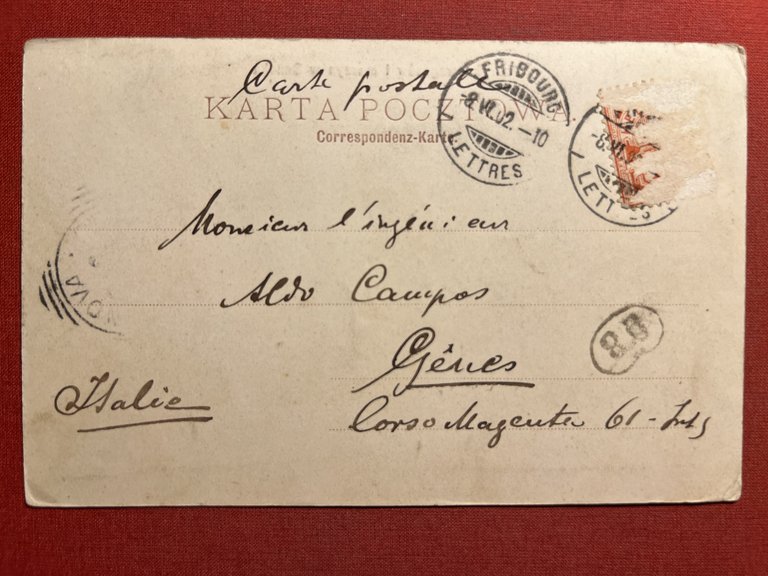 Carte postale
KARTA POCZTOWA.
Correspondenz-Karte
FRIBOURG
-8.VI.02.-10
LETTRES
LETTRES
Monsieur l'ingénieur
Aldo Campos
Gênes
Italie
Corso Magenta 61-
NOVA